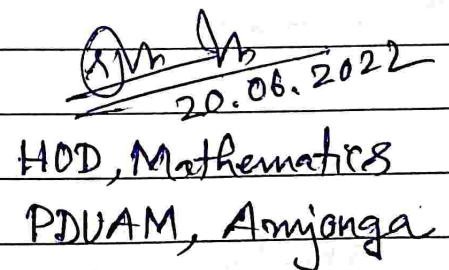 20.06.2022
HOD, Mathematics
PDUAM, Amjonga